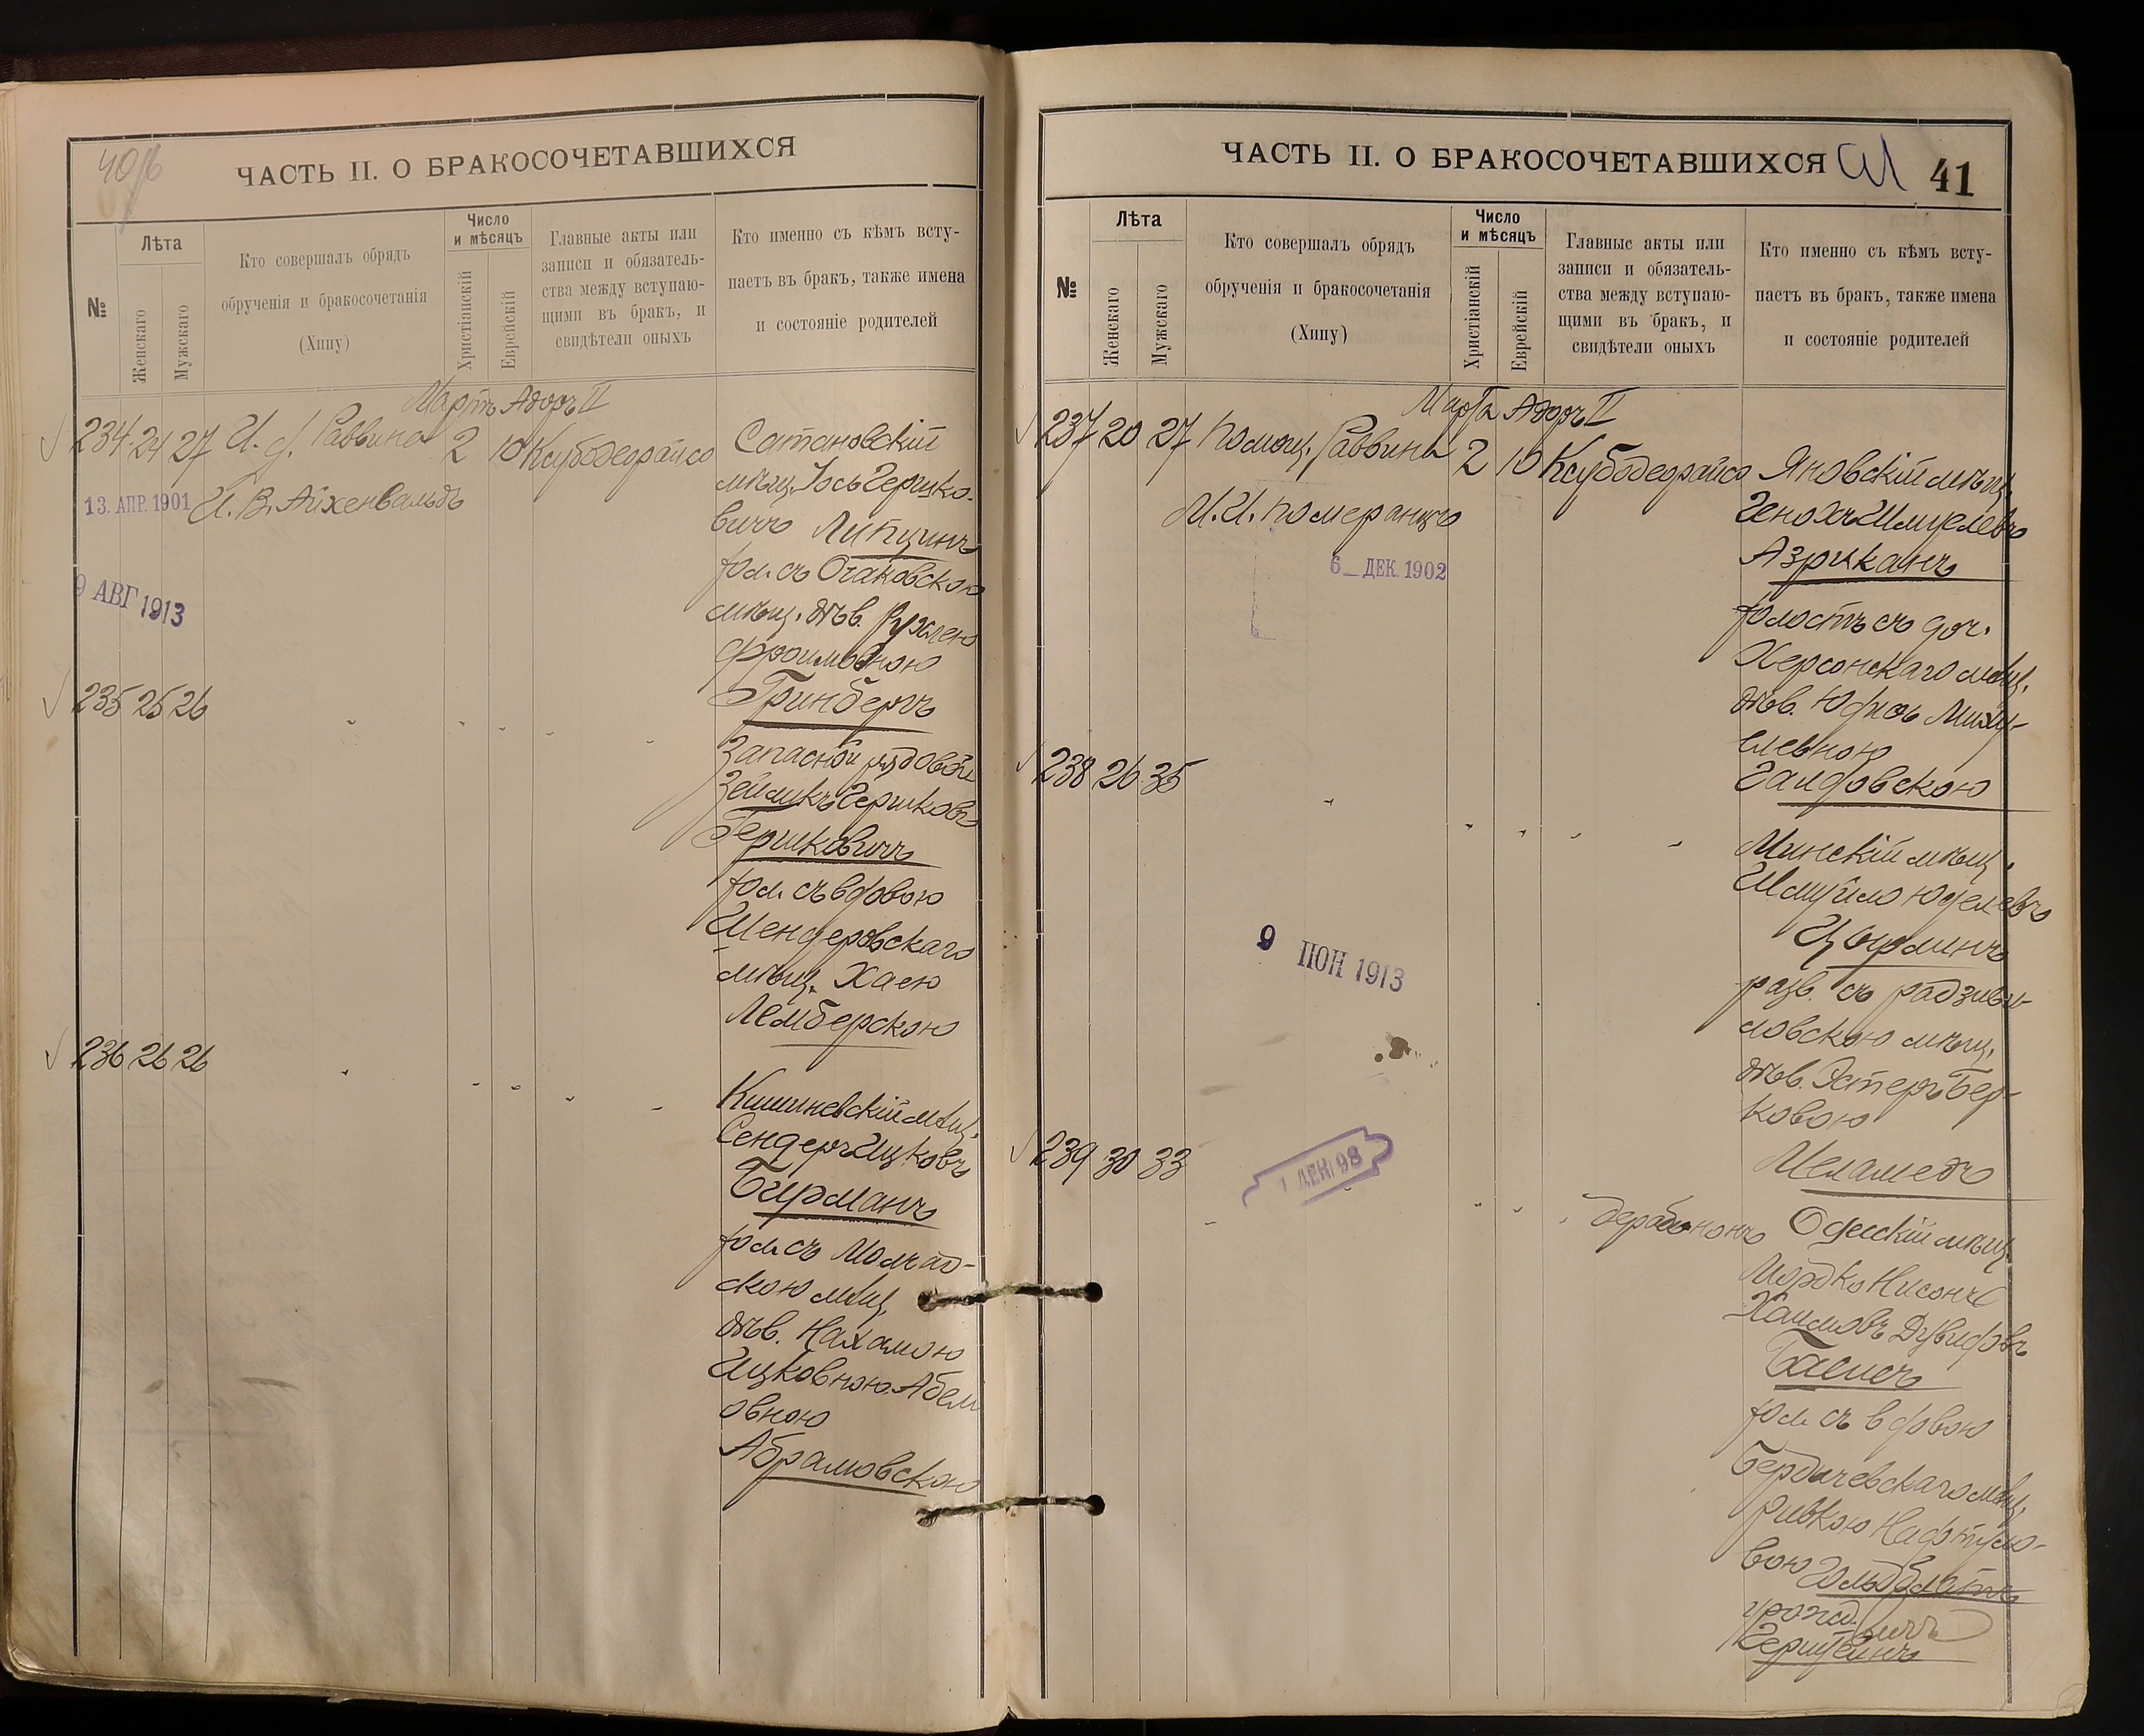 40об
ЧАСТЬ II. О БРАКОСОЧЕТАВШИХСЯ
№
Лѣта
Женскаго
Мужскаго
Кто совершалъ обрядъ
обрученія и бракосочетанія
(Хипу)
Число
и мѣсяцъ
Христіанскій
Еврейскій
Главные акты или
записи и обязатель-
ства между вступаю-
щими въ бракъ, и
свидѣтели оныхъ
Кто именно съ кѣмъ всту-
паетъ въ бракъ, также имена
и состояніе родителей
Мартъ Адоръ II
234 24 27 И. д. Раввина 2 10 Ксубодеорайсо
13. АПР. 1901 И. В. Айхенвальдъ
9 АВГ 1913
Сатановскій
мѣщ. Іось Гершко-
вичъ Липцинъ
хол. съ Очаковскою
мѣщ. дѣв. Рухлею
Фроимовною
Гринбергъ
235 25 26
Запасной рядовой
Зейликъ Гершковъ
Гершковичъ
хол. съ вдовою
Шендеровскаго
мѣщ. Хаею
Лемберскою
236 26 26
Кишиневскій мѣщ.
Сендеръ Ицковъ
Бирманъ
хол. съ Молчад-
скою мѣщ.
дѣв. Нахамою
Ицковною-Абел
овною
Абрамовскою
ЧАСТЬ II. О БРАКОСОЧЕТАВШИХСЯ
41
№
Лѣта
Женскаго
Мужскаго
Кто совершалъ обрядъ
обрученія и бракосочетанія
(Хипу)
Число
и мѣсяцъ
Христіанскій
Еврейскій
Главные акты или
записи и обязатель-
ства между вступаю-
щими въ бракъ, и
свидѣтели оныхъ
Кто именно съ кѣмъ всту-
паетъ въ бракъ, также имена
и состояніе родителей
Марта Адоръ II
237 20 27 Помощ. Раввина 2 10 Ксубодеорайсо
И. И. Померанцъ
6 ДЕК. 1902
Яновскій мѣщ.
Генохъ Шмулевъ
Азриканъ
холостъ съ доч.
Херсонскаго мѣщ.
дѣв. Юдисъ Миху-
елевною
Гандовскою
238 26 35
Минскій мѣщ.
Шмуйло Юделевъ
Цырлинъ
разв. съ Радзиви-
ловскою мѣщ.
дѣв. Эстеръ Бер-
ковою
Меламедъ
9 ІЮН 1913
239 30 33
1 ДЕК 98
дерабононъ Одесскій мѣщ.
Мордко Нисонъ
Хаимовъ Дувидовъ
хол. съ вдовою
Бердичевскаго мѣщ.
Ривкою Нафтуло-
вою Гольдблатъ
урожд.
Герштейнъ